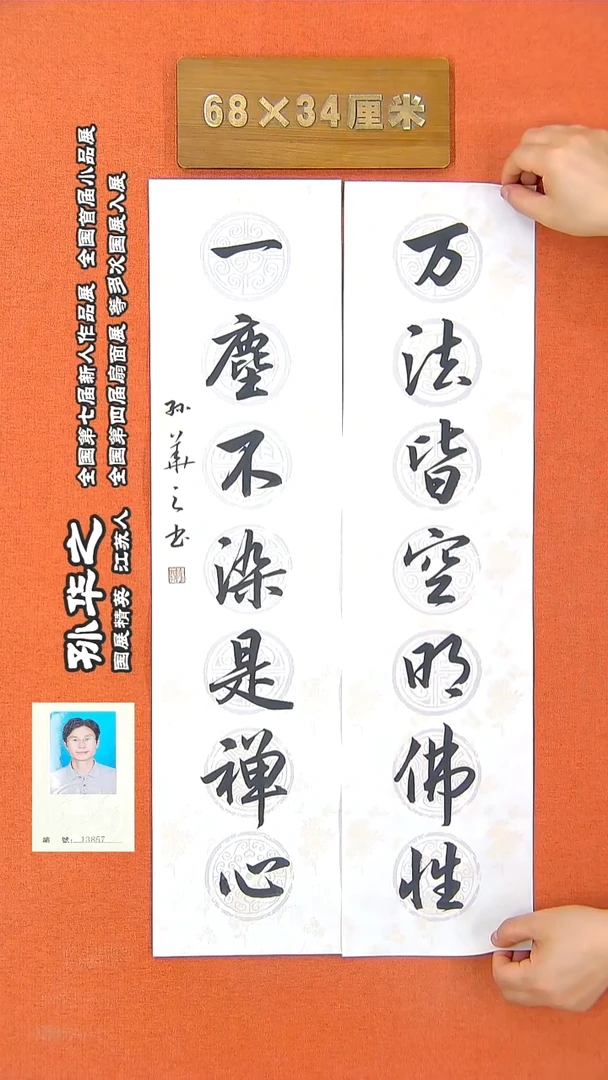 68×34厘米
万法皆空明佛性
一塵不染是禅心
孙華之书
孙华之
国展精英 江苏人
全国第七届新人作品展 全国首届小品展
全国第四届扇面展 等多次国展入展
編 號: 13857